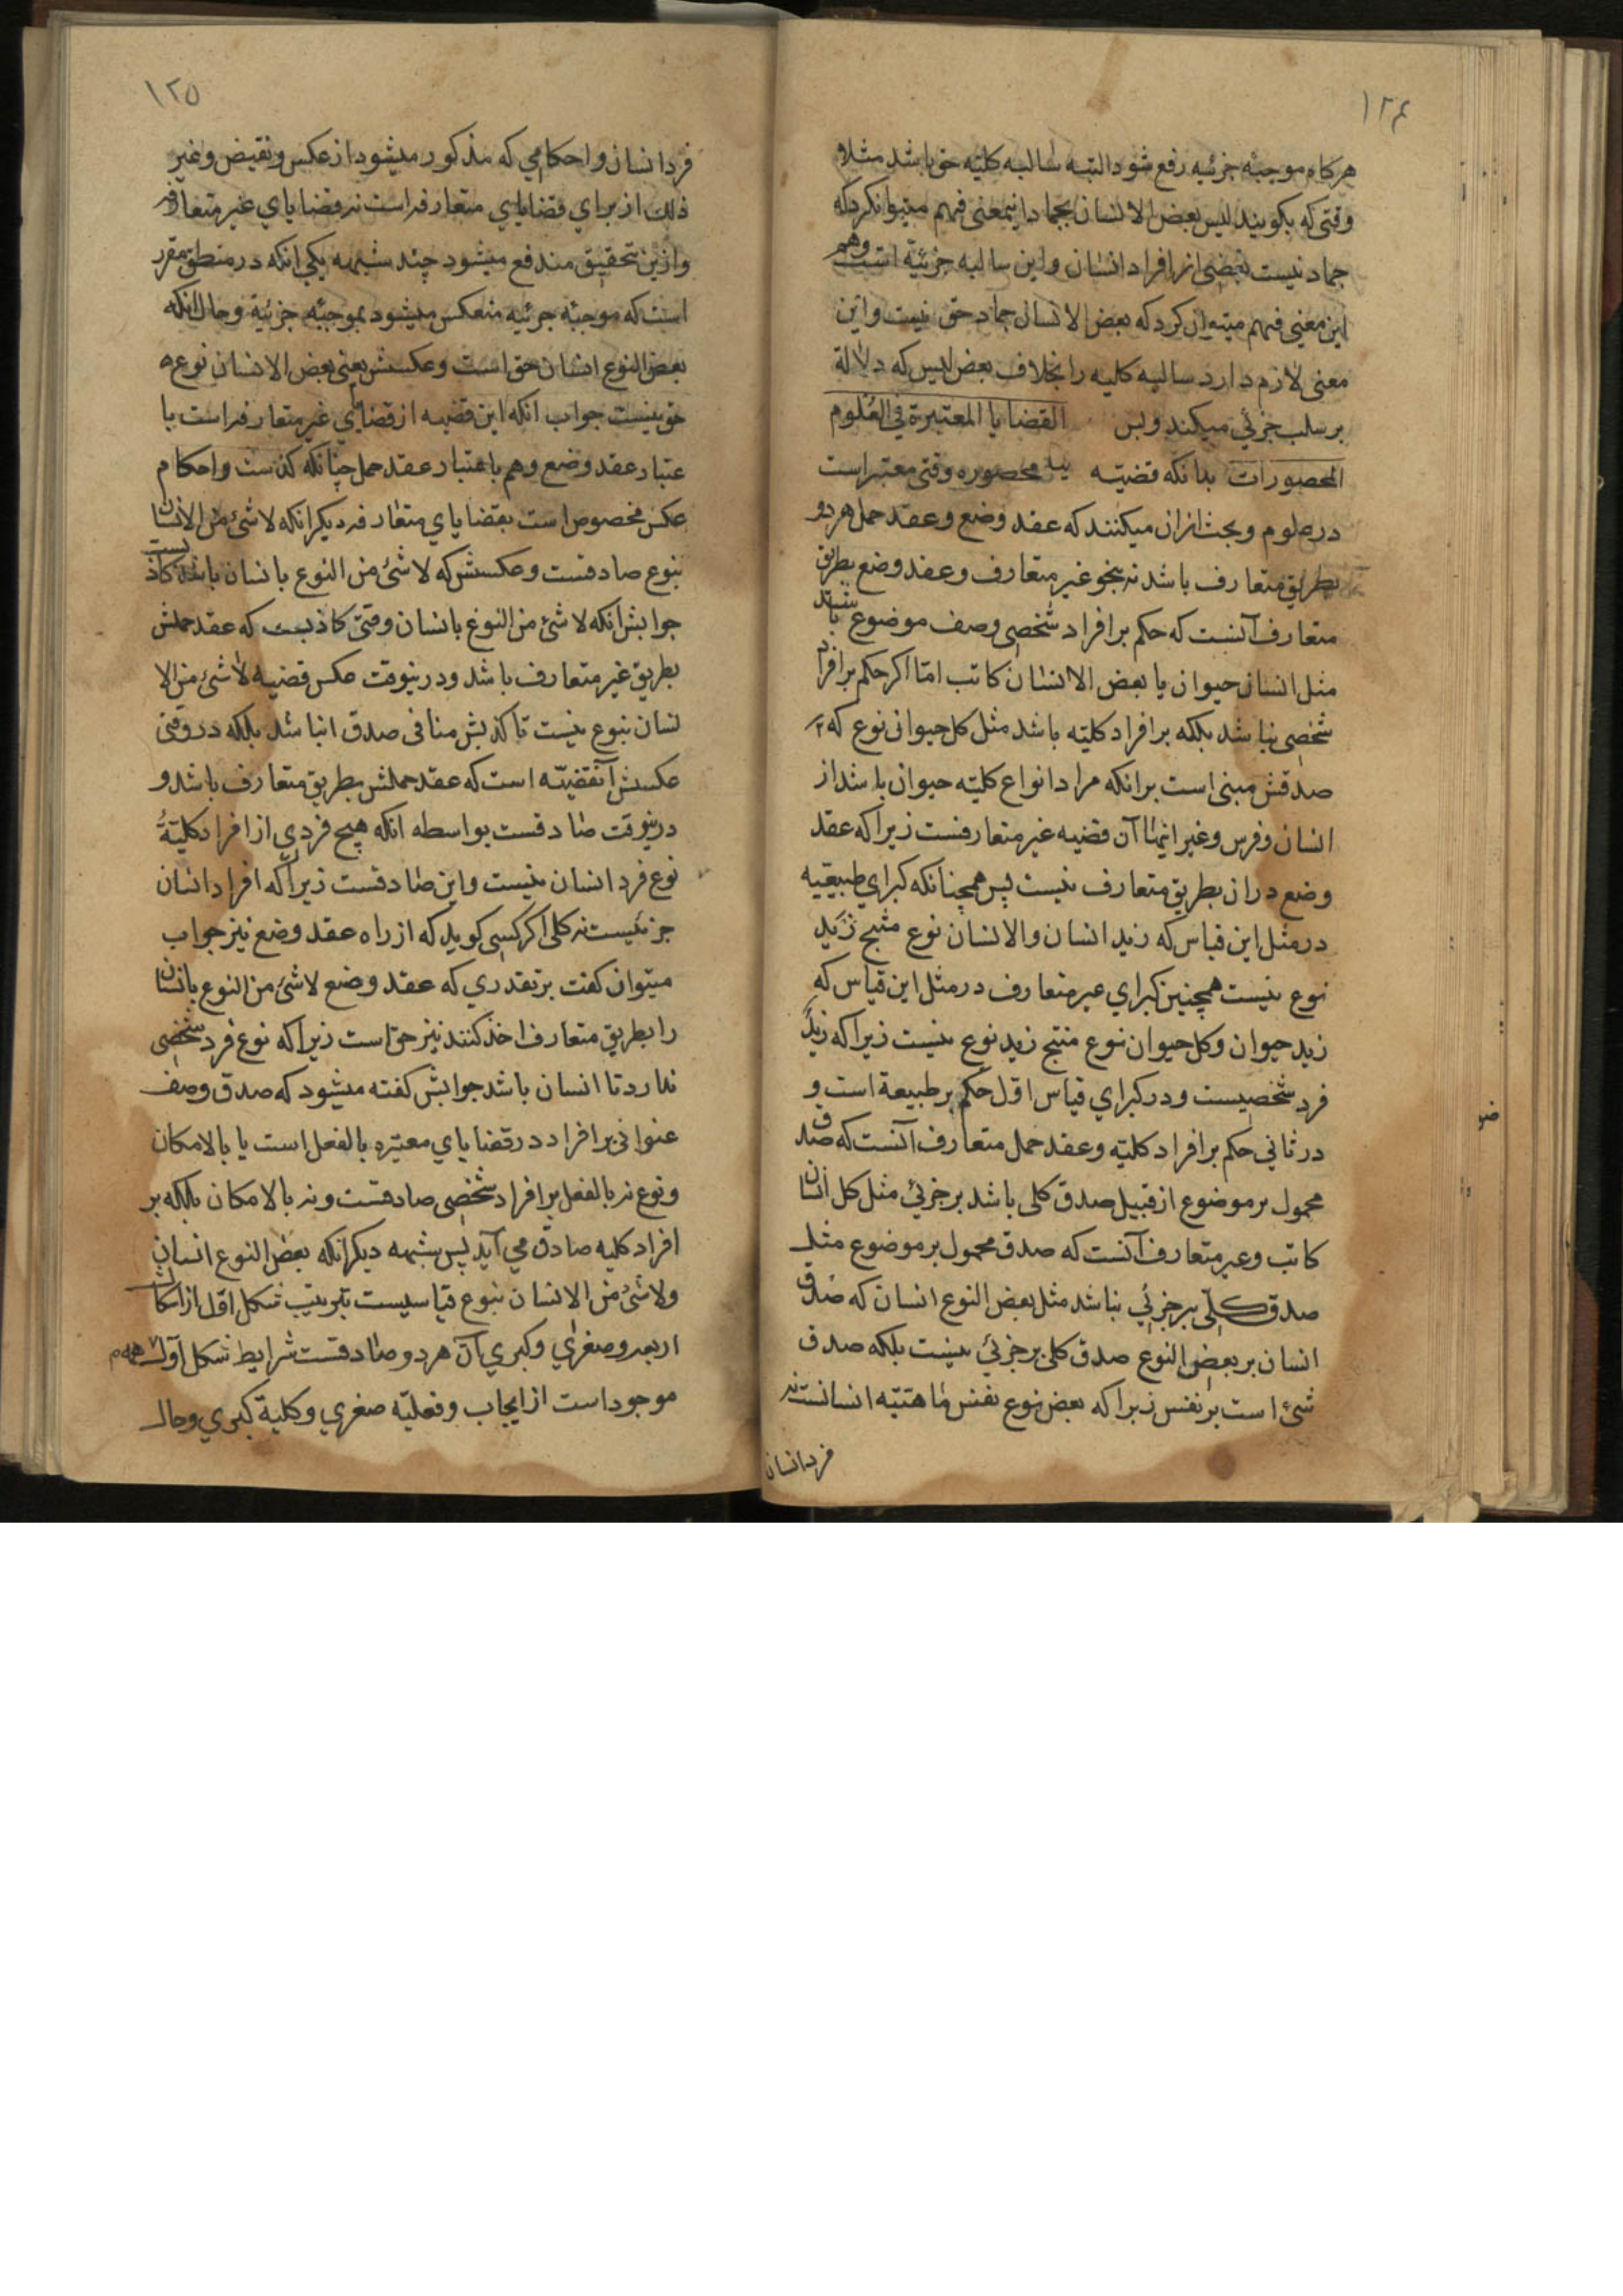 ۱۲۴
هرکاه موجبه جزئیه رفع شود البته سالبه کلیه حق باشد مثلا و
وقتی که بکویند لیس بعض الانسان بجماد اینمعنی فهم میتوانکرد که
جماد نیست بعضی از افراد انسان واین سالبه جزئیه است وهم
این معنی فهم میتوان کرد که بعض الانسان جماد حق نیست واین
معنی لازم دارد سالبه کلیه را بخلاف بعض لیس که دلالة
بر سلب جزئی میکند وبس القضایا المعتبرة فی العلوم
المحصورات بدانکه قضیه محصوره وقتی معتبر است
در علوم وبحث ازان میکنند که عقد وضع وعقد حمل هر دو
بطریق متعارف باشد نه بنحو غیر متعارف وعقد وضع بطریق
متعارف آنست که حکم بر افراد شخصی وصف موضوع باشد
مثل انسان حیوان یا بعض الانسان کاتب اما اکر حکم بر افراد
شخصی نباشد بلکه بر افراد کلیه باشد مثل کل حیوانی نوع که
صدقش مبنی است برانکه مراد انواع کلیه حیوان باشد از
انسان وفرس وغیر اینها آن قضیه غیر متعارفست زیرا که عقد
وضع دران بطریق متعارف نیست پس همچنانکه کبرای طبیعیه
در مثل این قیاس که زید انسان والانسان نوع منتج زید
نوع نیست همچنین کبرای غیر متعارف در مثل این قیاس که
زید حیوان وکل حیوان نوع منتج زید نوع نیست زیرا که زید
فرد شخصیست ودر کبرای قیاس اول حکم بر طبیعة است و
در ثانی حکم بر افراد کلیه وعقد حمل متعارف آنست که صدق
محمول بر موضوع از قبیل صدق کلی باشد بر جزئی مثل کل انسان
کاتب وغیر متعارف آنست که صدق محمول بر موضوع مثل
صدق کلی بر جزئی نباشد مثل بعض النوع انسان که صدق
انسان بر بعض النوع صدق کلی بر جزئی نیست بلکه صدق
شئ است بر نفس زیرا که بعض نوع نفس ماهیته انسانست نه
فرد انسان
۱۲۵
فرد انسان واحکامی که مذکور میشود از عکس ونقیض وغیر
ذلک از برای قضایای متعارفه است نه قضایای غیر متعارفه
وازین تحقیق مندفع میشود چند شبهه یکی انکه در منطق مقرر
است که موجبه جزئیه منعکس میشود بموجبه جزئیه وحال انکه
بعض النوع انسان حق است وعکسش یعنی بعض الانسان نوع
حق نیست جواب انکه این قضیه از قضایای غیر متعارفه است با
عتبار عقد وضع وهم باعتبار عقد حمل چنانکه کذشت واحکام
عکس مخصوص است بقضایای متعارفه دیکر انکه لا شئ من الانسان
بنوع صادقست وعکسش که لا شئ من النوع بانسان باشد کاذبست
جوابش انکه لا شئ من النوع بانسان وقتی کاذبست که عقد حملش
بطریق غیر متعارف باشد ودرینوقت عکس قضیه لا شئ من الا
نسان بنوع نیست تا کذبش منافی صدق انباشد بلکه در وقتی
عکسش آنقضیه است که عقد حملش بطریق متعارف باشد و
درینوقت صادقست بواسطه انکه هیچ فردی از افراد کلیة
نوع فرد انسان نیست واین صادقست زیرا که افراد انسان
جزئیست نه کلی اکر کسی کوید که از راه عقد وضع نیز جواب
میتوان کفت بر تقدری که عقد وضع لا شئ من النوع بانسان
را بطریق متعارف اخذ کنند نیز حق است زیرا که نوع فرد شخصی
ندارد تا انسان باشد جوابش کفته میشود که صدق وصف
عنوانی بر افراد در قضایای معتبره بالفعل است یا بالامکان
ونوع نه بالفعل بر افراد شخصی صادقست ونه بالامکان بلکه بر
افراد کلیه صادق می آید پس شبهه دیکر انکه بعض النوع انسان
ولا شئ من الانسان بنوع قیاسیست بترتیب شکل اول از اشکال
اربعه وصغرای وکبری آن هر دو صادقست شرایط شکل اول همه
موجود است از ایجاب وفعلیة صغری وکلیة کبری وحال